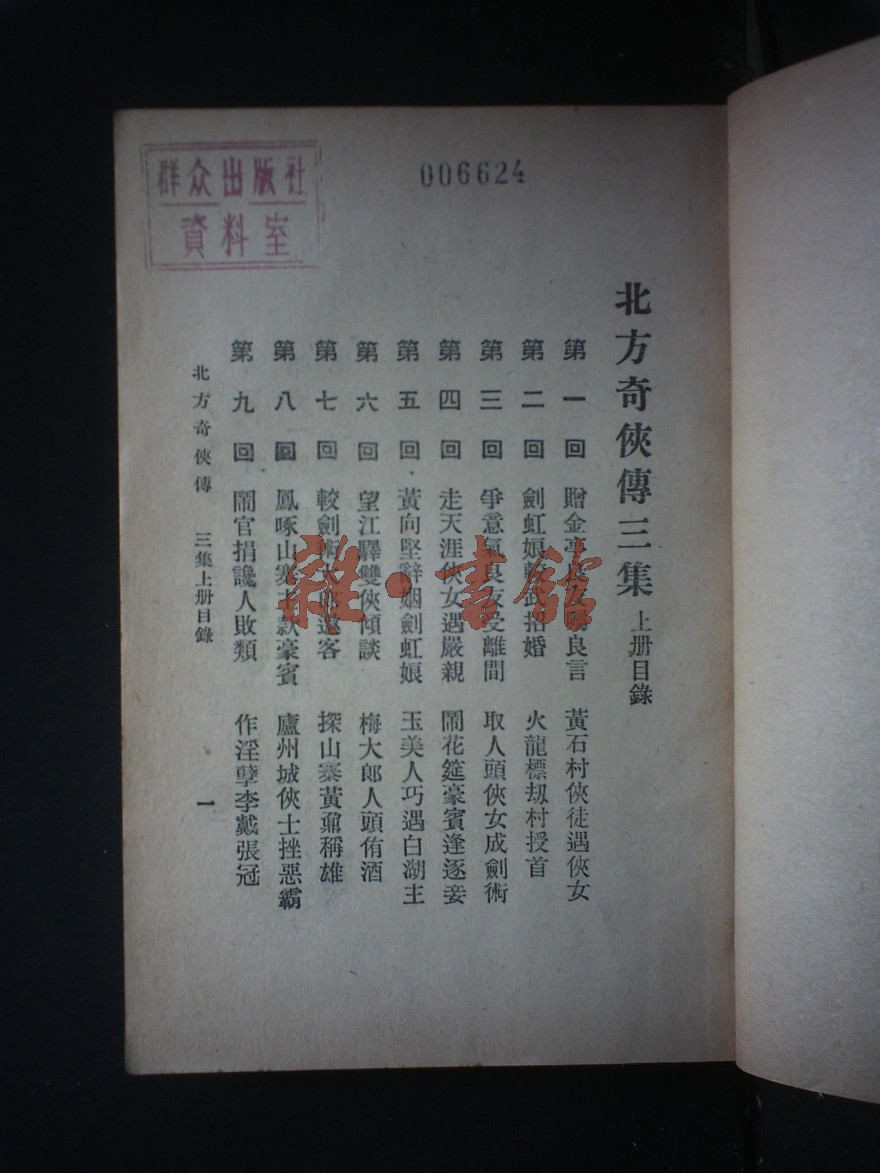 群众出版社
資料室
006624
北方奇俠傳三集 上册目錄
第一回 贈金亭良友囑良言 黃石村俠徒遇俠女
第二回 劍虹娘較武招婚 火龍標刼村授首
第三回 爭意氣良友受離間 取人頭俠女成劍術
第四回 走天涯俠女遇嚴親 鬧花筵豪賓逢逐妾
第五回 黃向堅辭姻劍虹娘 玉美人巧遇白湖主
第六回 望江驛雙俠傾談 梅大郎人頭侑酒
第七回 較劍術大郎邀客 探山寨黃鼐稱雄
第八回 鳳啄山寨主款豪賓 廬州城俠士挫惡霸
第九回 鬧官捐讒人敗類 作淫孽李戴張冠
北方奇俠傳 三集上册目錄 一
雜·書館